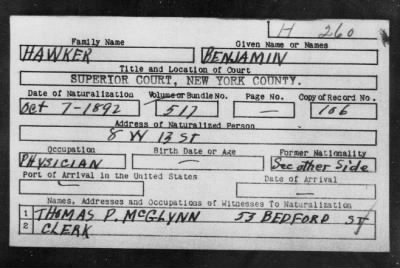 H 260
Family Name Given Name or Names
HAWKER BENJAMIN
Title and Location of Court
SUPERIOR COURT, NEW YORK COUNTY.
Date of Naturalization Volume or Bundle No. Page No. Copy of Record No.
Oct 7-1892 517 — 106
Address of Naturalized Person
8 W 13 ST
Occupation Birth Date or Age Former Nationality
PHYSICIAN — See other Side
Port of Arrival in the United States Date of Arrival
— —
Names, Addresses and Occupations of Witnesses To Naturalization
1 THOMAS P. McGLYNN 53 BEDFORD ST
2 CLERK